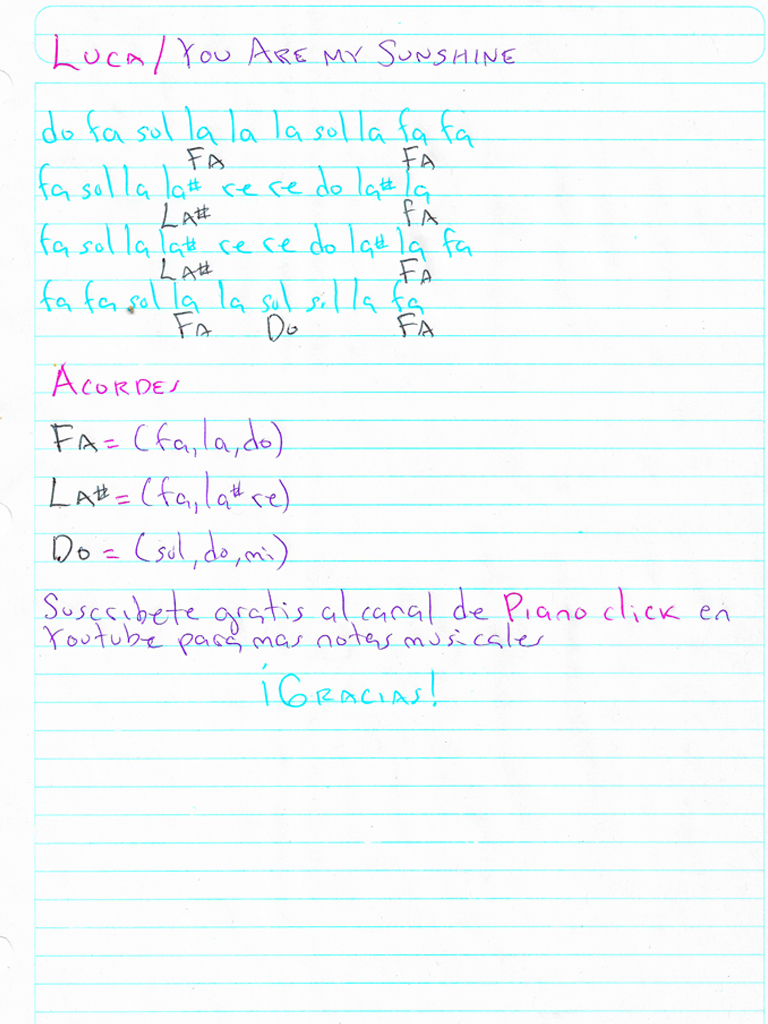 LUCA / YOU ARE MY SUNSHINE
do fa sol la la la sol la fa fa
FA FA
fa sol la la# re re do la# la
LA# FA
fa sol la la# re re do la# la fa
LA# FA
fa fa sol la la sol sil la fa
FA DO FA
ACORDES
FA = (fa, la, do)
LA# = (fa, la# re)
DO = (sol, do, mi)
Suscribete gratis al canal de Piano click en
Youtube para mas notas musicales
¡GRACIAS!